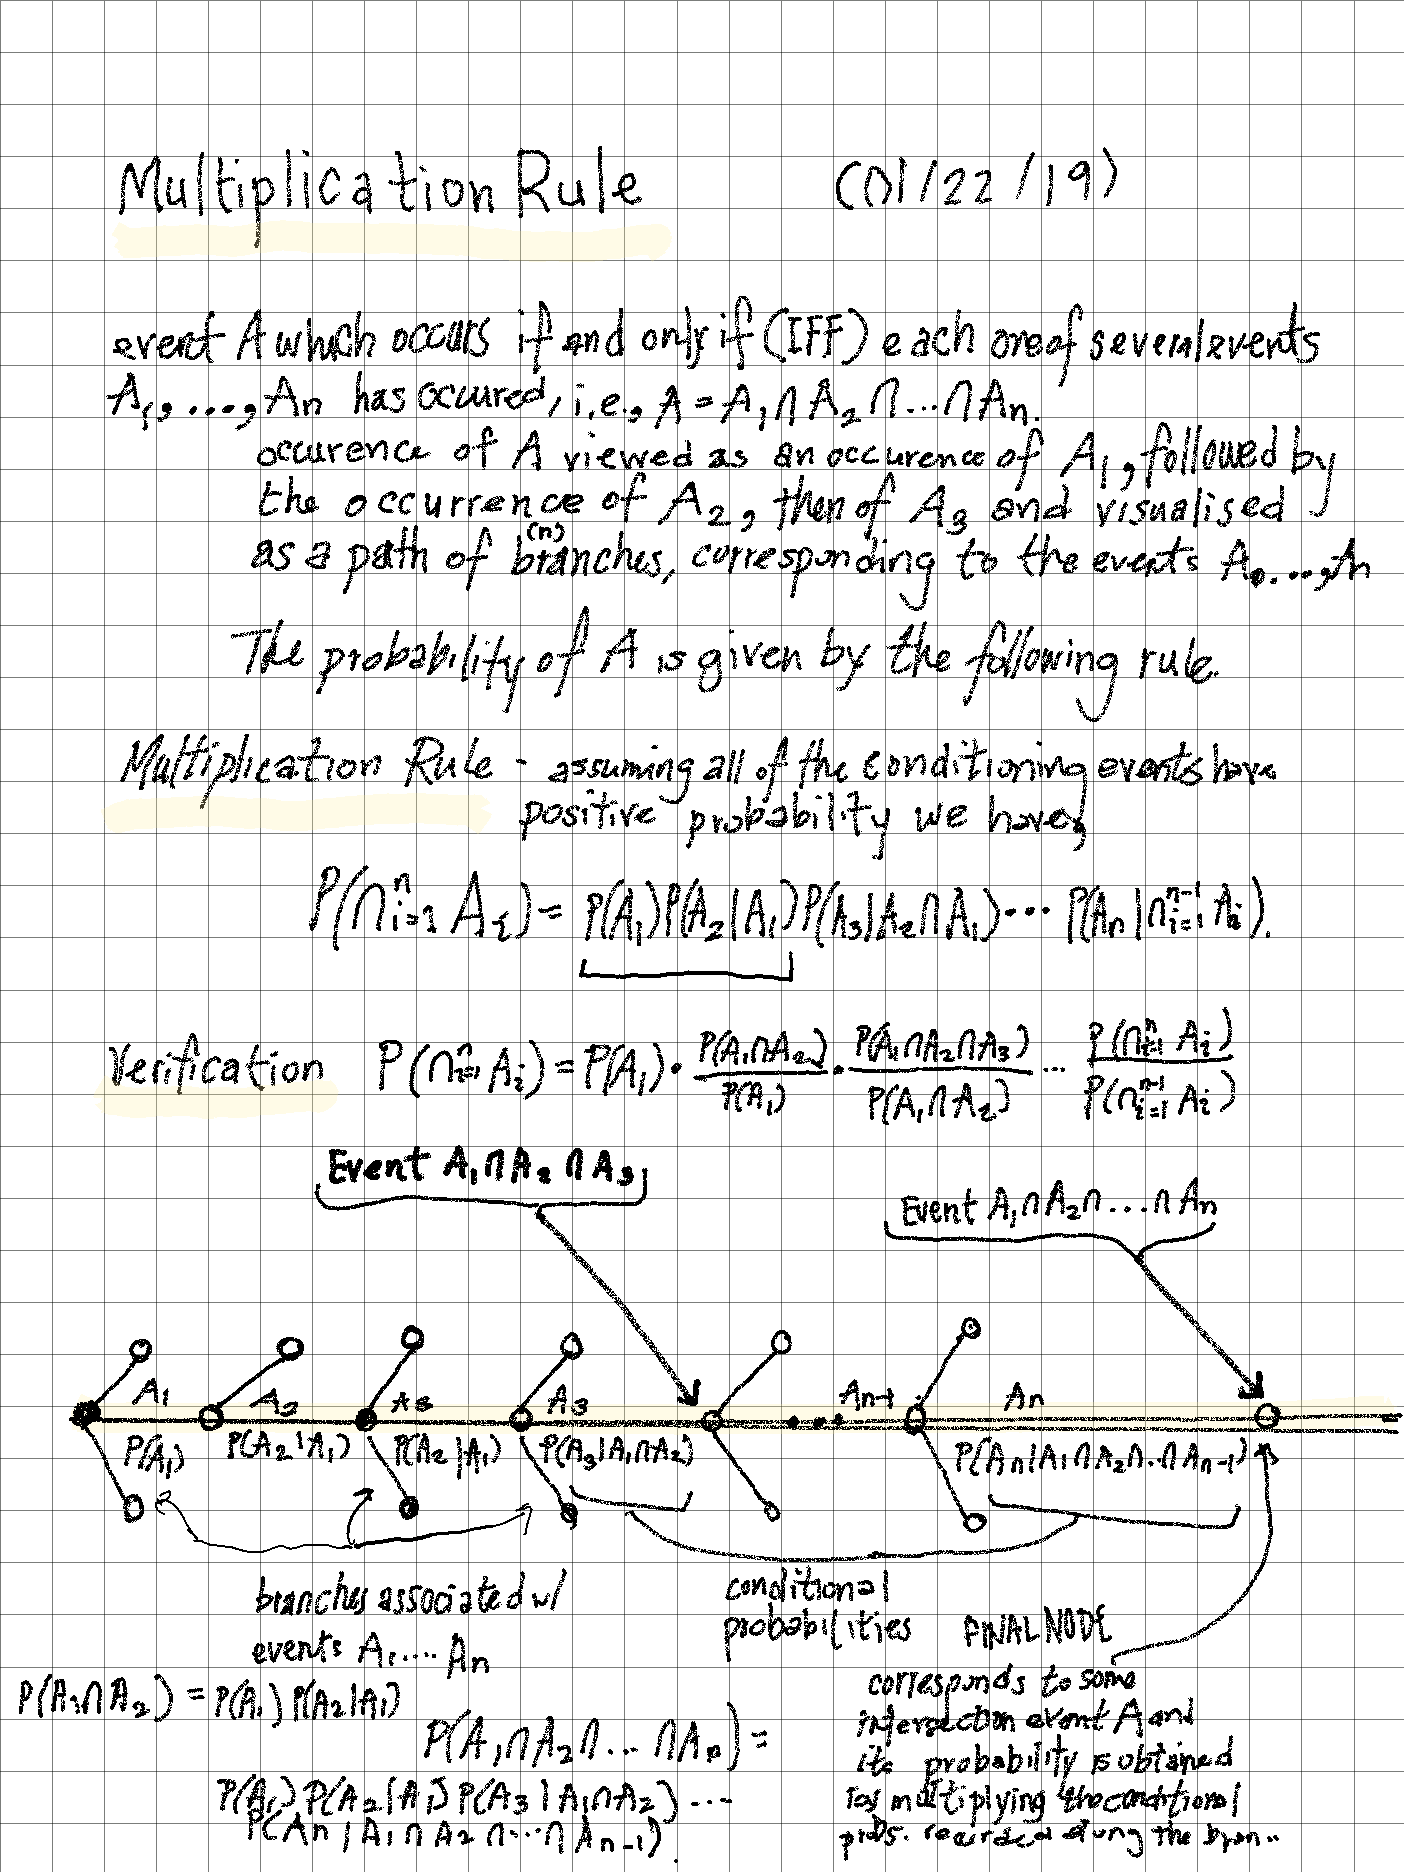 Multiplication Rule (01/22/19)
event A which occurs if and only if (IFF) each one of several events
A₁, ..., An has occured, i.e., A = A₁ ∩ A₂ ∩ ... ∩ An.
occurence of A viewed as an occurence of A₁, followed by
the occurrence of A₂, then of A₃ and visualised
(n)
as a path of branches, corresponding to the events A₁, ..., An
The probability of A is given by the following rule.
Multiplication Rule - assuming all of the conditioning events have
positive probability we have,
P(∩ⁿᵢ₌₁ Aᵢ) = P(A₁)P(A₂|A₁)P(A₃|A₂∩A₁)··· P(An|∩ⁿ⁻¹ᵢ₌₁ Aᵢ).
Verification P(∩ⁿᵢ₌₁ Aᵢ) = P(A₁) · P(A₁∩A₂)/P(A₁) · P(A₁∩A₂∩A₃)/P(A₁∩A₂) ... P(∩ⁿᵢ₌₁ Aᵢ)/P(∩ⁿ⁻¹ᵢ₌₁ Aᵢ)
Event A₁∩A₂∩A₃
Event A₁∩A₂∩...∩An
A₁ A₂ A₃ A₃ An-1 An
P(A₁) P(A₂|A₁) P(A₂|A₁) P(A₃|A₁∩A₂) P(An|A₁∩A₂∩...∩An-1)
branches associated w/
events A₁.... An
conditional
probabilities
FINAL NODE
corresponds to some
intersection event A and
its probability is obtained
by multiplying the conditional
probs. recorded along the
P(A₁∩A₂) = P(A₁)P(A₂|A₁)
P(A₁∩A₂∩...∩An) =
P(A₁)P(A₂|A₁)P(A₃|A₁∩A₂)...
P(An|A₁∩A₂∩...∩An-1).